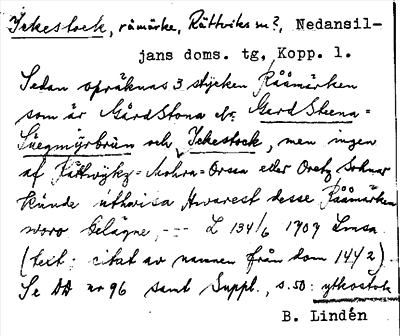 Ickestock, råmärke, Rättviks sn?, Nedansil-
jans doms. tg, Kopp. l.
Sedan opräknas 3 stycken Rååmärken
som är Gård Stona el. Gard Steena =
Siegmyrbrun och Ickestock, men ingen
af Rättwijkz = Mohra = Orssa eller Oretz Soknar
kunde uthwisa hwarest desse Rååmärken
woro belägne, --- L 134/6 1709 Lmsa
(text: citat av namnen från dom 1442).
Se DD nr 96 samt Suppl., s. 50: ytkostok
B. Lindén